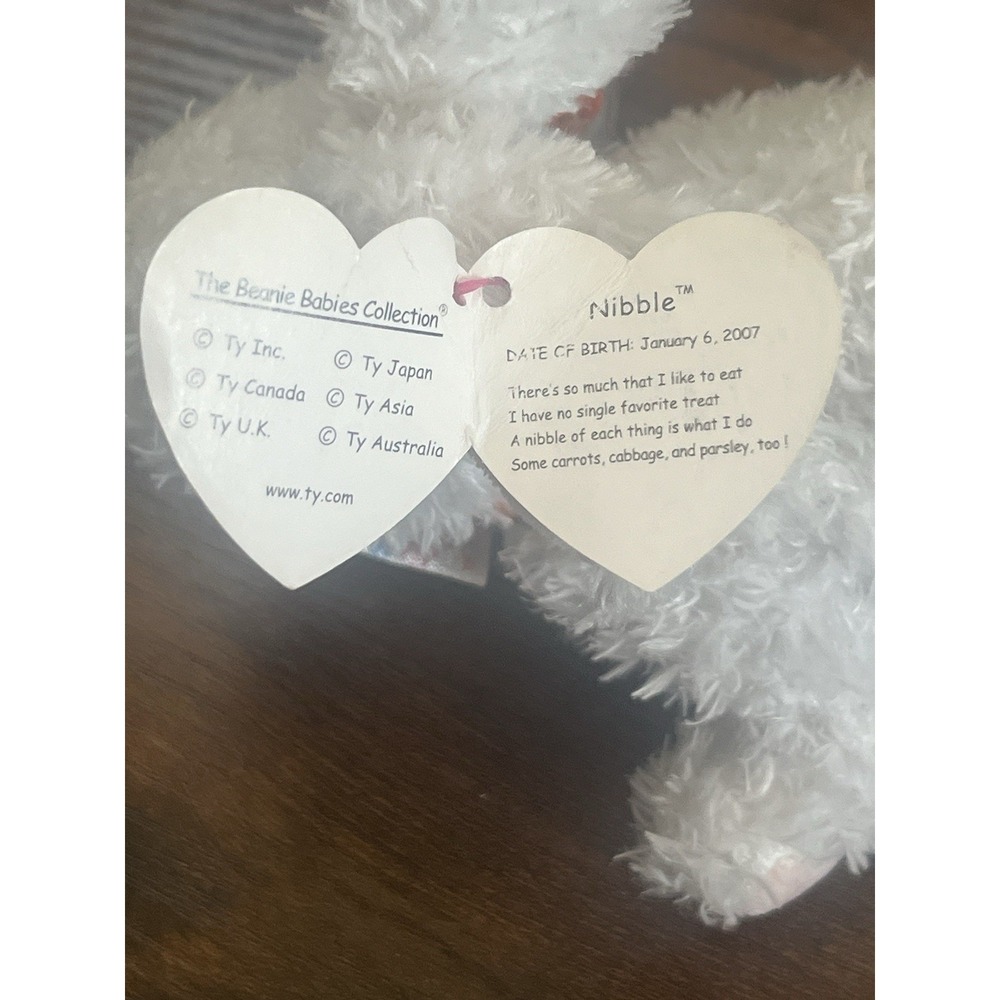 The Beanie Babies Collection®
© Ty Inc. © Ty Japan
© Ty Canada © Ty Asia
© Ty U.K. © Ty Australia
www.ty.com
Nibble™
DATE OF BIRTH: January 6, 2007
There's so much that I like to eat
I have no single favorite treat
A nibble of each thing is what I do
Some carrots, cabbage, and parsley, too !